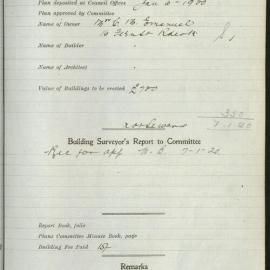 Plan deposited at Council Offices Jan 6 - 1920
Plan approved by Committee
Name of Owner Mrs C. M. Emanuel
Name of Builder
Name of Architect
Value of Buildings to be erected £700
350
7-1-20
Building Surveyor's Report to Committee
Rec for app 7-1-20
Report Book, folio
Plans Committee Minute Book, page
Building Fee Paid 15/-
Remarks